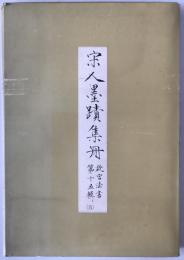 宋人墨蹟集冊
故宮法書
第十五輯